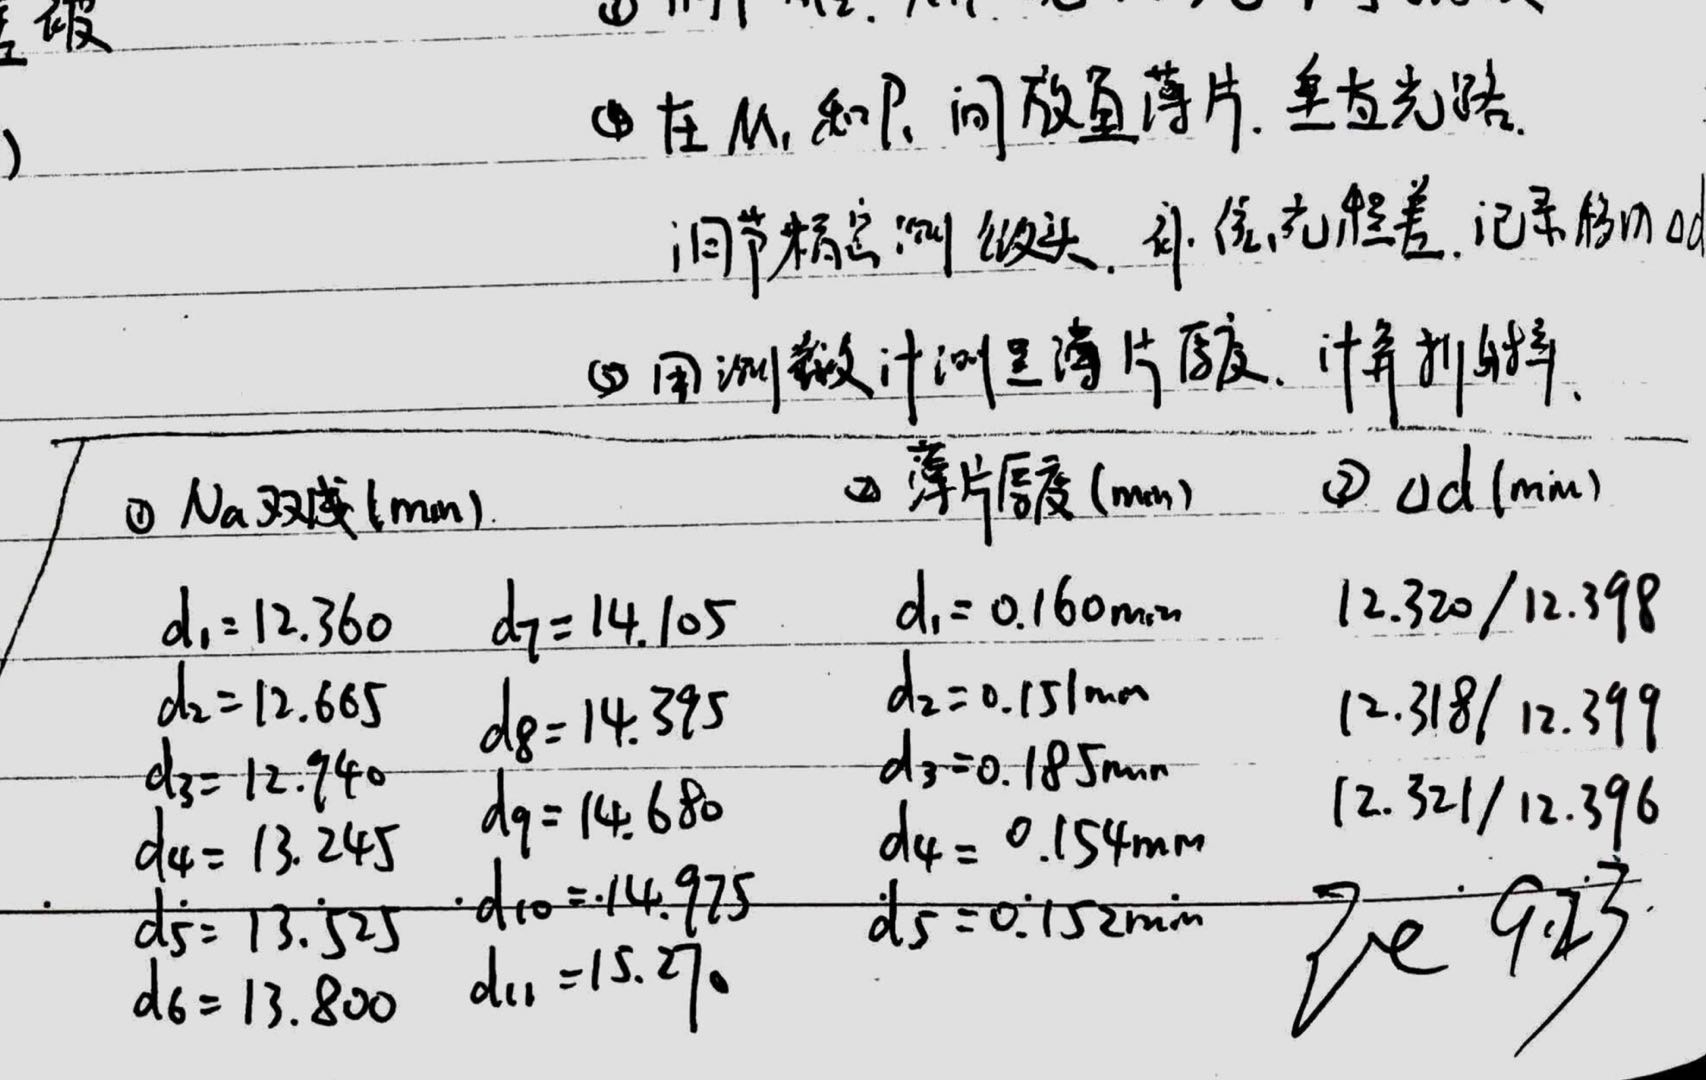 ④ 在 M₁ 和 P₁ 间放置薄片. 垂直光路.
调节精密测微头. 补偿光程差. 记录移动 Δd
⑤ 用测微计测量薄片厚度. 计算折射率.
① Na双线(mm).
d₁=12.360
d₂=12.665
d₃=12.940
d₄=13.245
d₅=13.525
d₆=13.800
d₇=14.105
d₈=14.395
d₉=14.680
d₁₀=14.975
d₁₁=15.270
② 薄片厚度(mm)
d₁=0.160mm
d₂=0.151mm
d₃=0.185mm
d₄=0.154mm
d₅=0.152mm
③ Δd(mm)
12.320/12.398
12.318/12.399
12.321/12.396
9.23